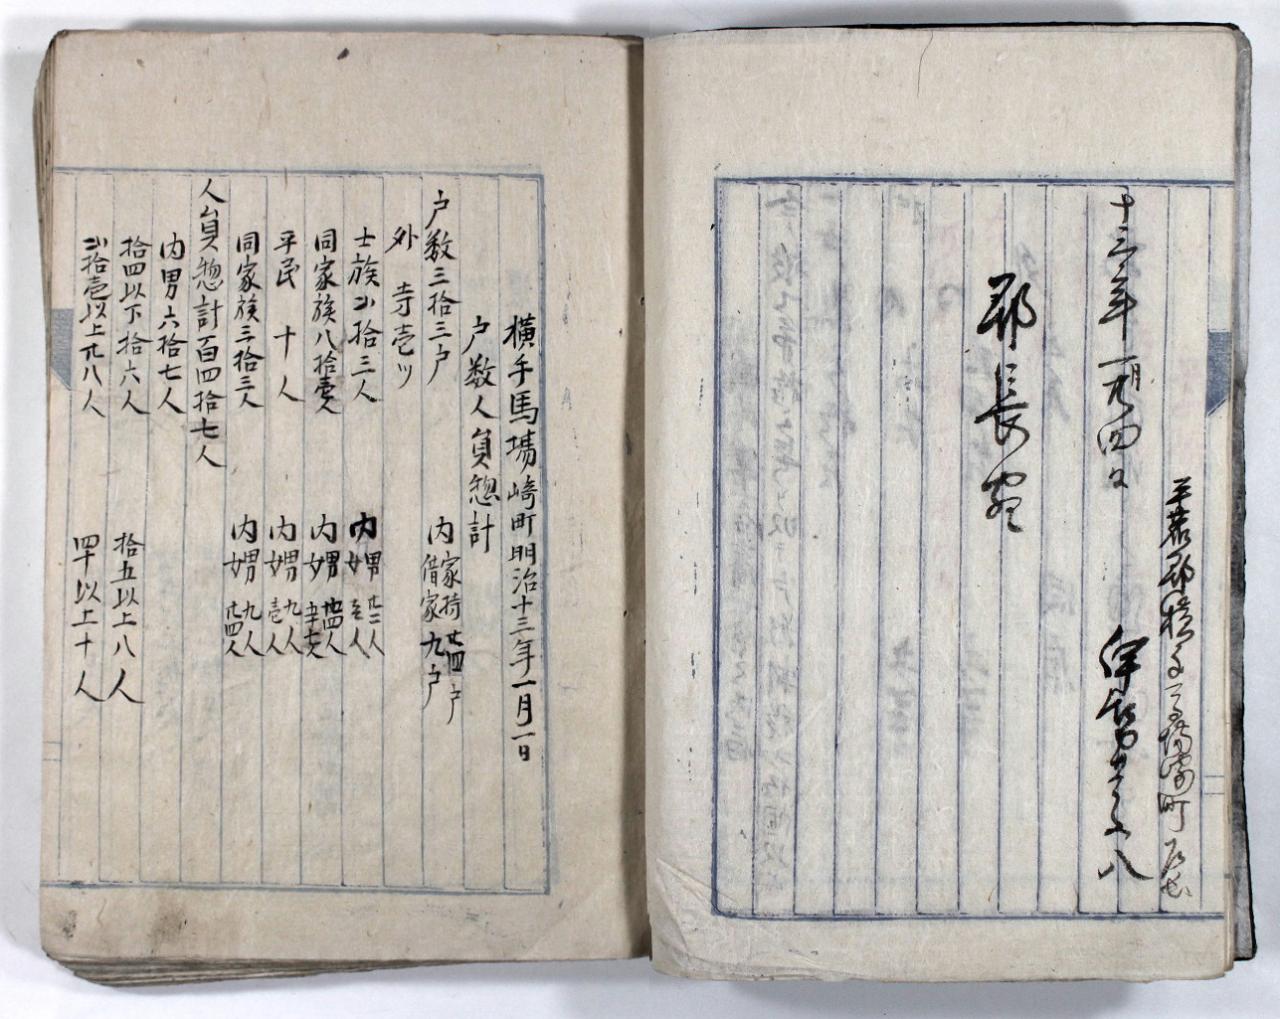 十三年一月四日
郡長宛
横手馬場崎町明治十三年一月一日
戸数人員惣計
戸数三拾三戸 内 家持廿四戸 借家九戸
外 寺壱ツ
士族弐拾三人 内 男廿二人 女壱人
同家族八拾壱人 内 男廿四人 女五十七人
平民 十人 内 男九人 女壱人
同家族三拾三人 内 男九人 女廿四人
人員惣計百四拾七人
内男六拾七人
拾四以下拾六人 拾五以上八人
弐拾壱以上廿八人 四十以上十人